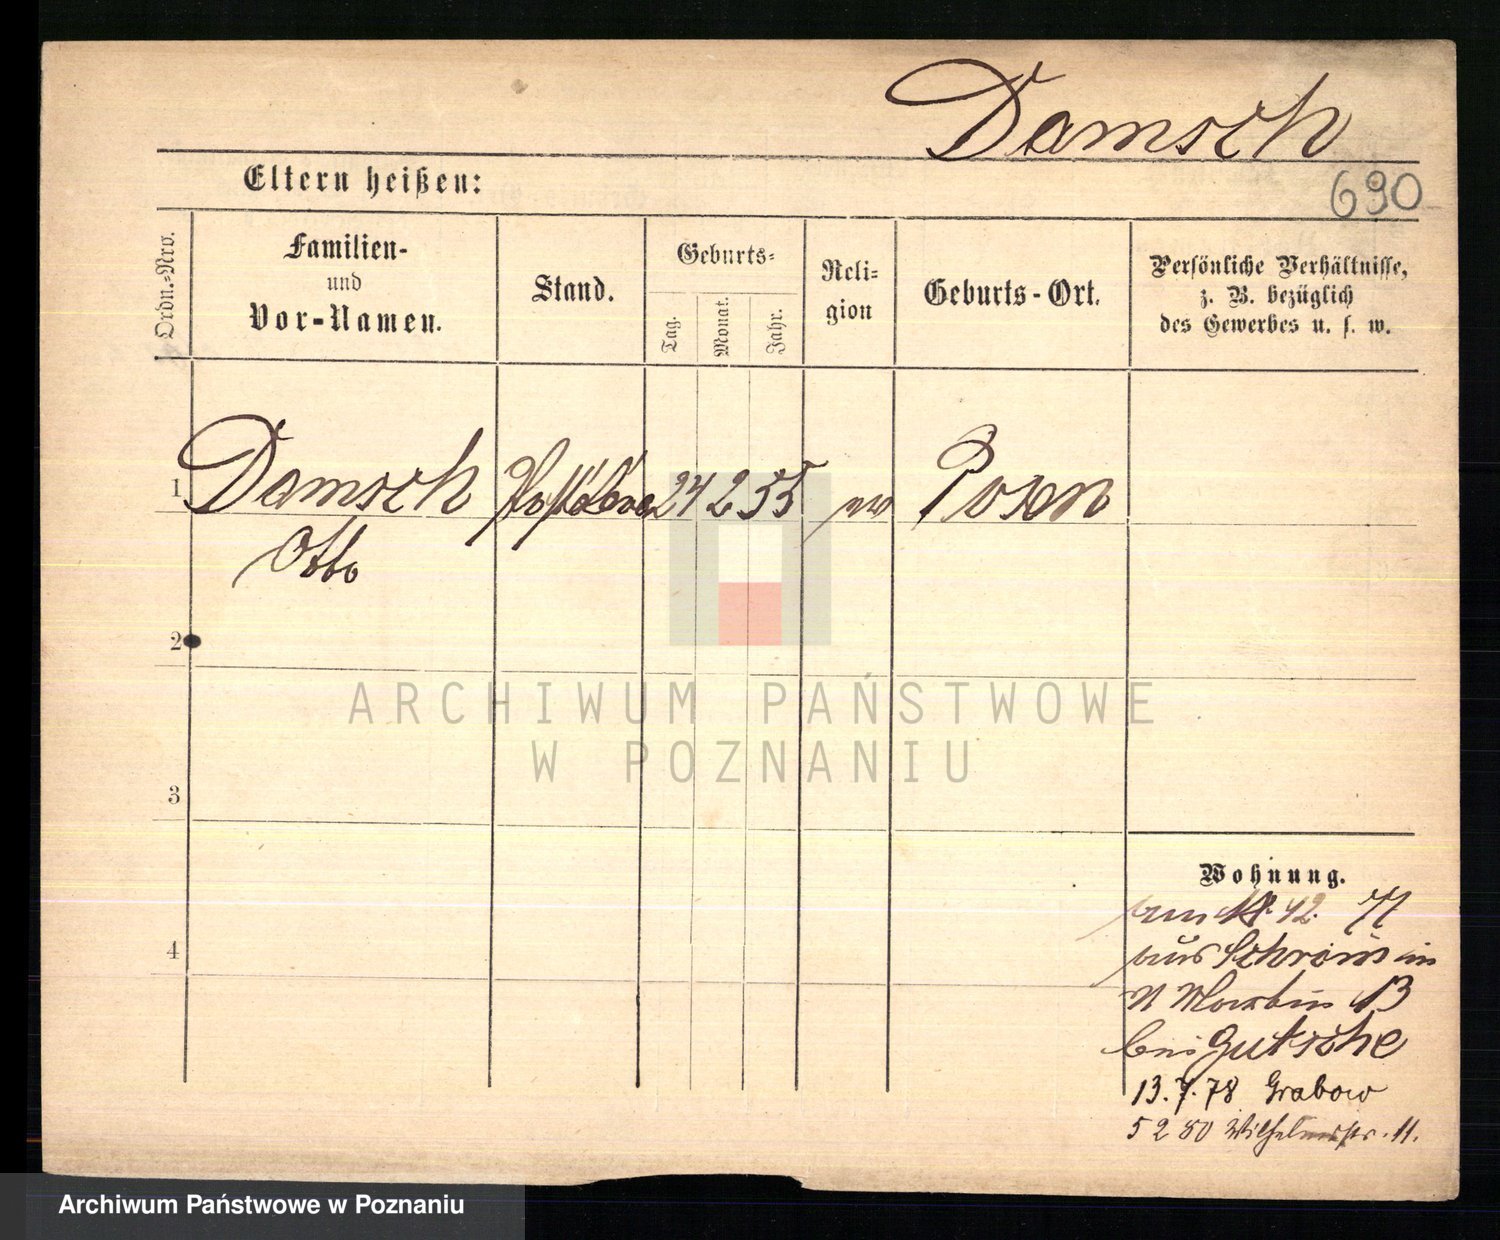 Damsch
Eltern heißen:
690
Ordn.-Nro.
Familien-
und
Vor-Namen.
Stand.
Geburts-
Tag.
Monat.
Jahr.
Reli-
gion
Geburts-Ort.
Persönliche Verhältnisse,
z. B. bezüglich
des Gewerbes u. s. w.
1
Damsch
24 2 55
ev
Posen
Otto
2
3
4
ARCHIWUM PAŃSTWOWE
W POZNANIU
Wohnung.
12. 77
aus Schrimm in
13
bei Gutsche
13. 7. 78 Grabow
5 2 80 Wilhelmstr. 11.
Archiwum Państwowe w Poznaniu